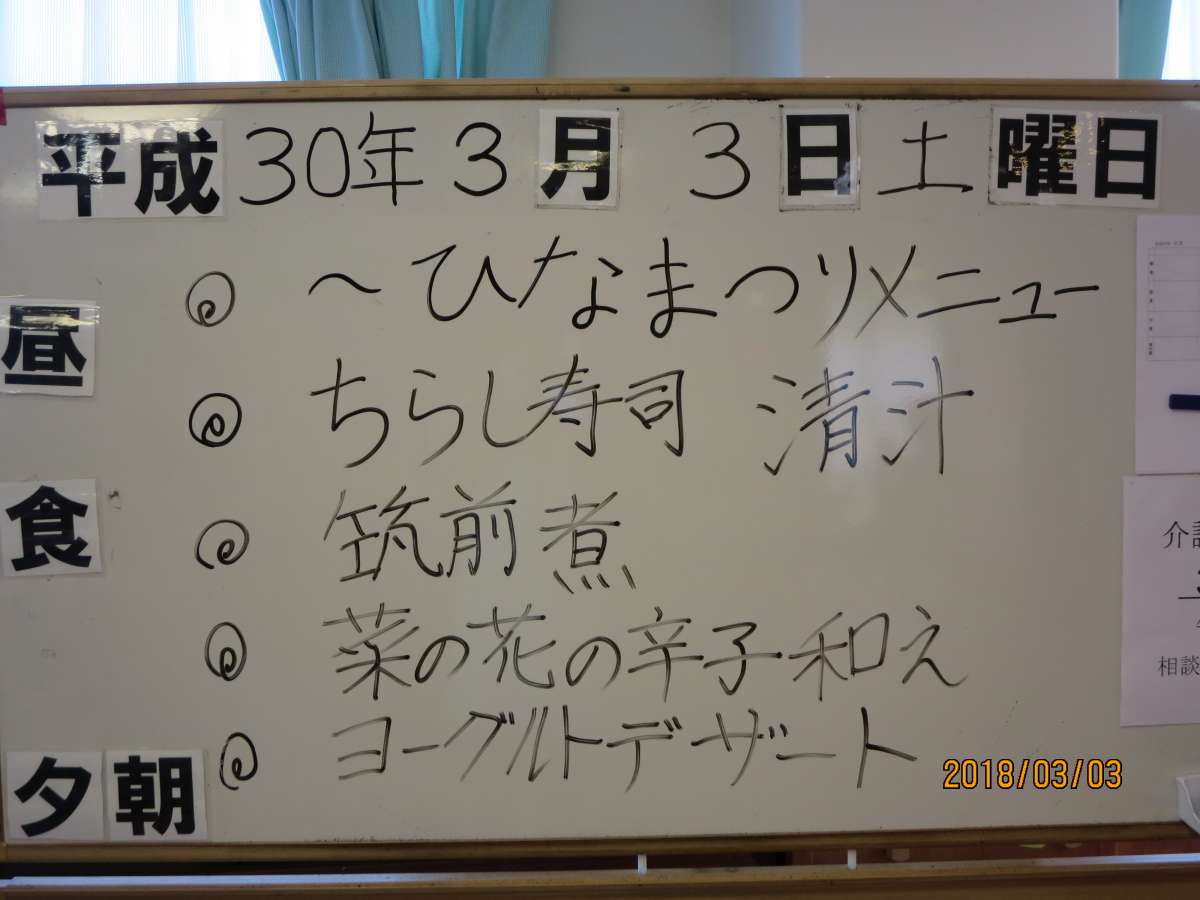 平成30年3月3日土曜日
昼食
◎ ~ひなまつりメニュー
◎ ちらし寿司 清汁
◎ 筑前煮
◎ 菜の花の辛子和え
◎ ヨーグルトデザート
夕朝
相談
2018/03/03